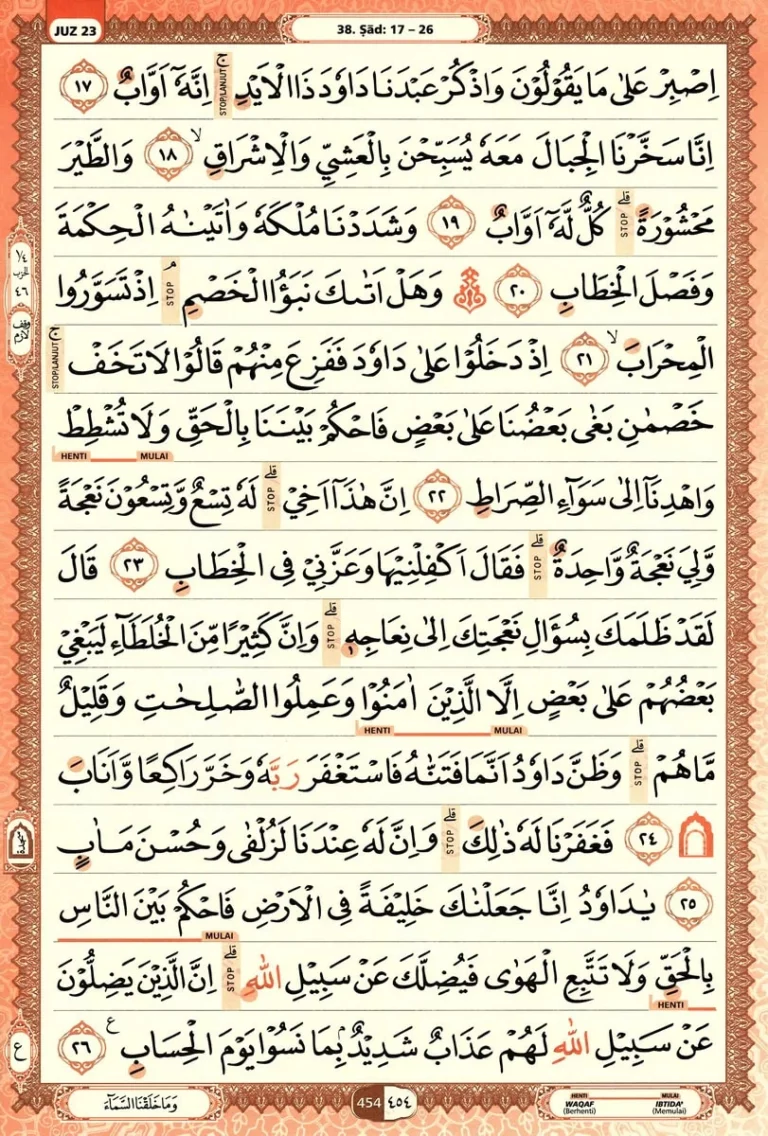 JUZ 23
38. Ṣād: 17 – 26
اِصْبِرْ عَلٰى مَا يَقُوْلُوْنَ وَاذْكُرْ عَبْدَنَا دَاوٗدَ ذَا الْاَيْدِۚ اِنَّهٗٓ اَوَّابٌ ١٧
STOP/LANJUT
اِنَّا سَخَّرْنَا الْجِبَالَ مَعَهٗ يُسَبِّحْنَ بِالْعَشِيِّ وَالْاِشْرَاقِۙ ١٨ وَالطَّيْرَ
مَحْشُوْرَةًۗ كُلٌّ لَّهٗٓ اَوَّابٌ ١٩ وَشَدَدْنَا مُلْكَهٗ وَاٰتَيْنٰهُ الْحِكْمَةَ
STOP
وَفَصْلَ الْخِطَابِ ٢٠ ۞ وَهَلْ اَتٰىكَ نَبَؤُا الْخَصْمِۘ اِذْ تَسَوَّرُوا
STOP
الْمِحْرَابَۙ ٢١ اِذْ دَخَلُوْا عَلٰى دَاوٗدَ فَفَزِعَ مِنْهُمْ قَالُوْا لَا تَخَفْۚ
STOP/LANJUT
خَصْمٰنِ بَغٰى بَعْضُنَا عَلٰى بَعْضٍ فَاحْكُمْ بَيْنَنَا بِالْحَقِّ وَلَا تُشْطِطْ
HENTI MULAI
وَاهْدِنَآ اِلٰى سَوَاۤءِ الصِّرَاطِ ٢٢ اِنَّ هٰذَآ اَخِيْۗ لَهٗ تِسْعٌ وَّتِسْعُوْنَ نَعْجَةً
STOP
وَّلِيَ نَعْجَةٌ وَّاحِدَةٌۗ فَقَالَ اَكْفِلْنِيْهَا وَعَزَّنِيْ فِى الْخِطَابِ ٢٣ قَالَ
STOP
لَقَدْ ظَلَمَكَ بِسُؤَالِ نَعْجَتِكَ اِلٰى نِعَاجِهٖۗ وَاِنَّ كَثِيْرًا مِّنَ الْخُلَطَاۤءِ لَيَبْغِيْ
STOP
بَعْضُهُمْ عَلٰى بَعْضٍ اِلَّا الَّذِيْنَ اٰمَنُوْا وَعَمِلُوا الصّٰلِحٰتِ وَقَلِيْلٌ
HENTI MULAI
مَّا هُمْۗ وَظَنَّ دَاوٗدُ اَنَّمَا فَتَنّٰهُ فَاسْتَغْفَرَ رَبَّهٗ وَخَرَّ رَاكِعًا وَّاَنَابَ
STOP
۩ ٢٤ فَغَفَرْنَا لَهٗ ذٰلِكَۗ وَاِنَّ لَهٗ عِنْدَنَا لَزُلْفٰى وَحُسْنَ مَاٰبٍ
STOP
٢٥ يٰدَاوٗدُ اِنَّا جَعَلْنٰكَ خَلِيْفَةً فِى الْاَرْضِ فَاحْكُمْ بَيْنَ النَّاسِ
MULAI
بِالْحَقِّ وَلَا تَتَّبِعِ الْهَوٰى فَيُضِلَّكَ عَنْ سَبِيْلِ اللّٰهِۗ اِنَّ الَّذِيْنَ يَضِلُّوْنَ
STOP
HENTI
عَنْ سَبِيْلِ اللّٰهِ لَهُمْ عَذَابٌ شَدِيْدٌۢ بِمَا نَسُوْا يَوْمَ الْحِسَابِ ࣖ ٢٦
وَمَا خَلَقْنَا السَّمَاۤءَ
454 ٤٥٤
HENTI MULAI
WAQAF IBTIDA'
(Berhenti) (Memulai)
١/٤
الحزب
٤٦
وقف لازم
سجدة
ع